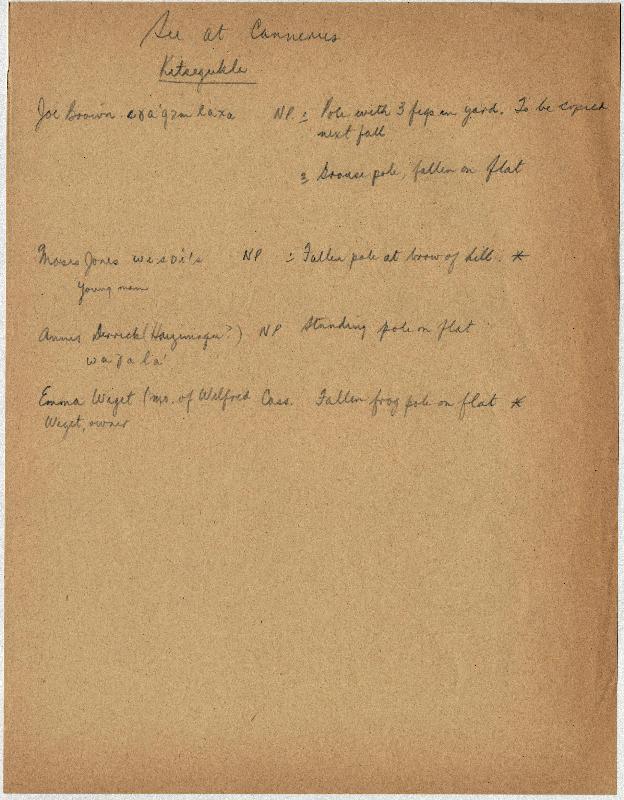 See at Canneries
Kitsegukle
Joe Brown NP : Pole with 3 figs in yard. To be copied
next fall
: Grouse pole, fallen on flat
Moses Jones NP : Fallen pole at brow of hill. *
Young man
Annis Derrick ( ?) NP Standing pole on flat
Emma Weget (mo. of Wilfred Cass. Fallen frog pole on flat *
Weget, owner